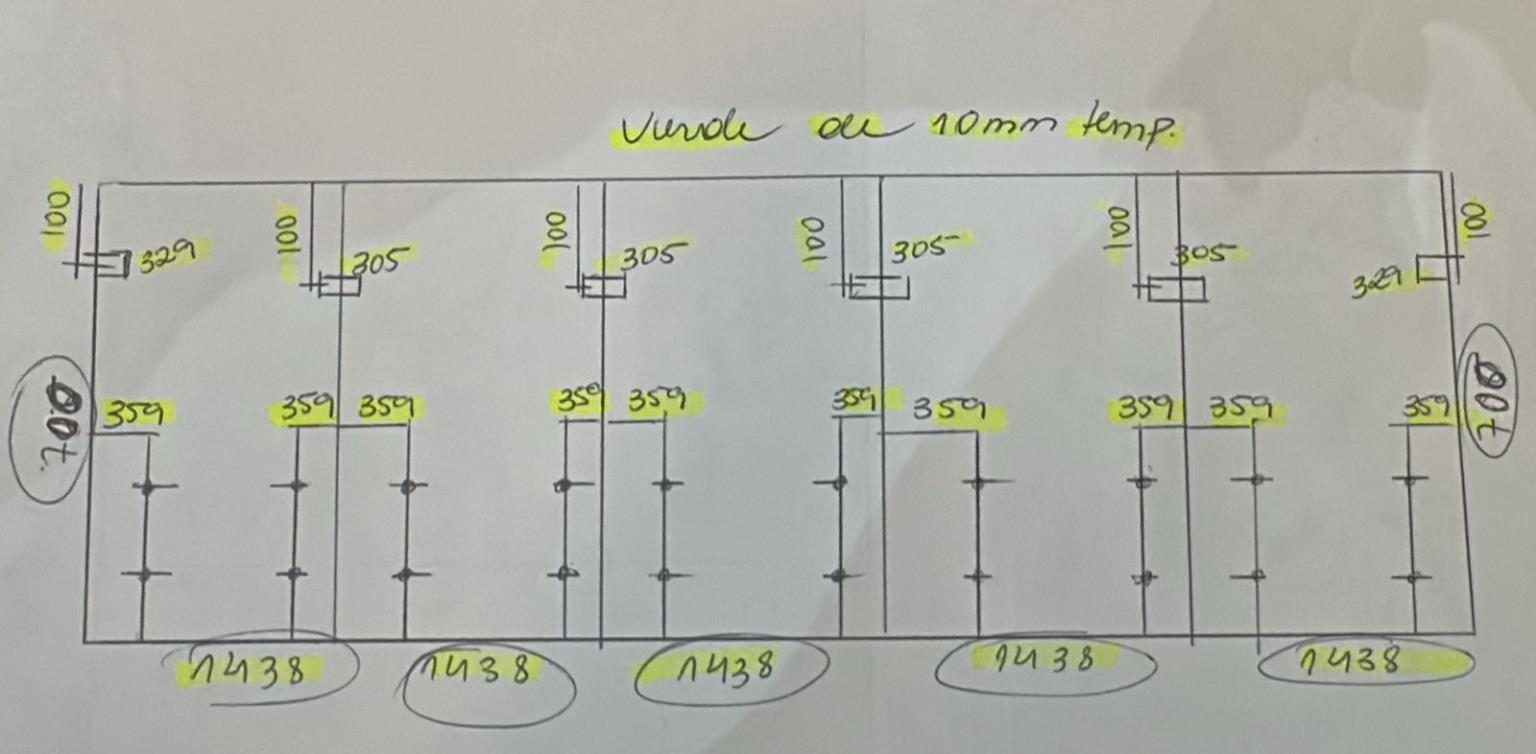 Verde de 10mm temp.
100 100 100 100 100 100
329 305 305 305 305 329
700 700
359 359 359 359 359 359 359 359 359 359
1438 1438 1438 1438 1438